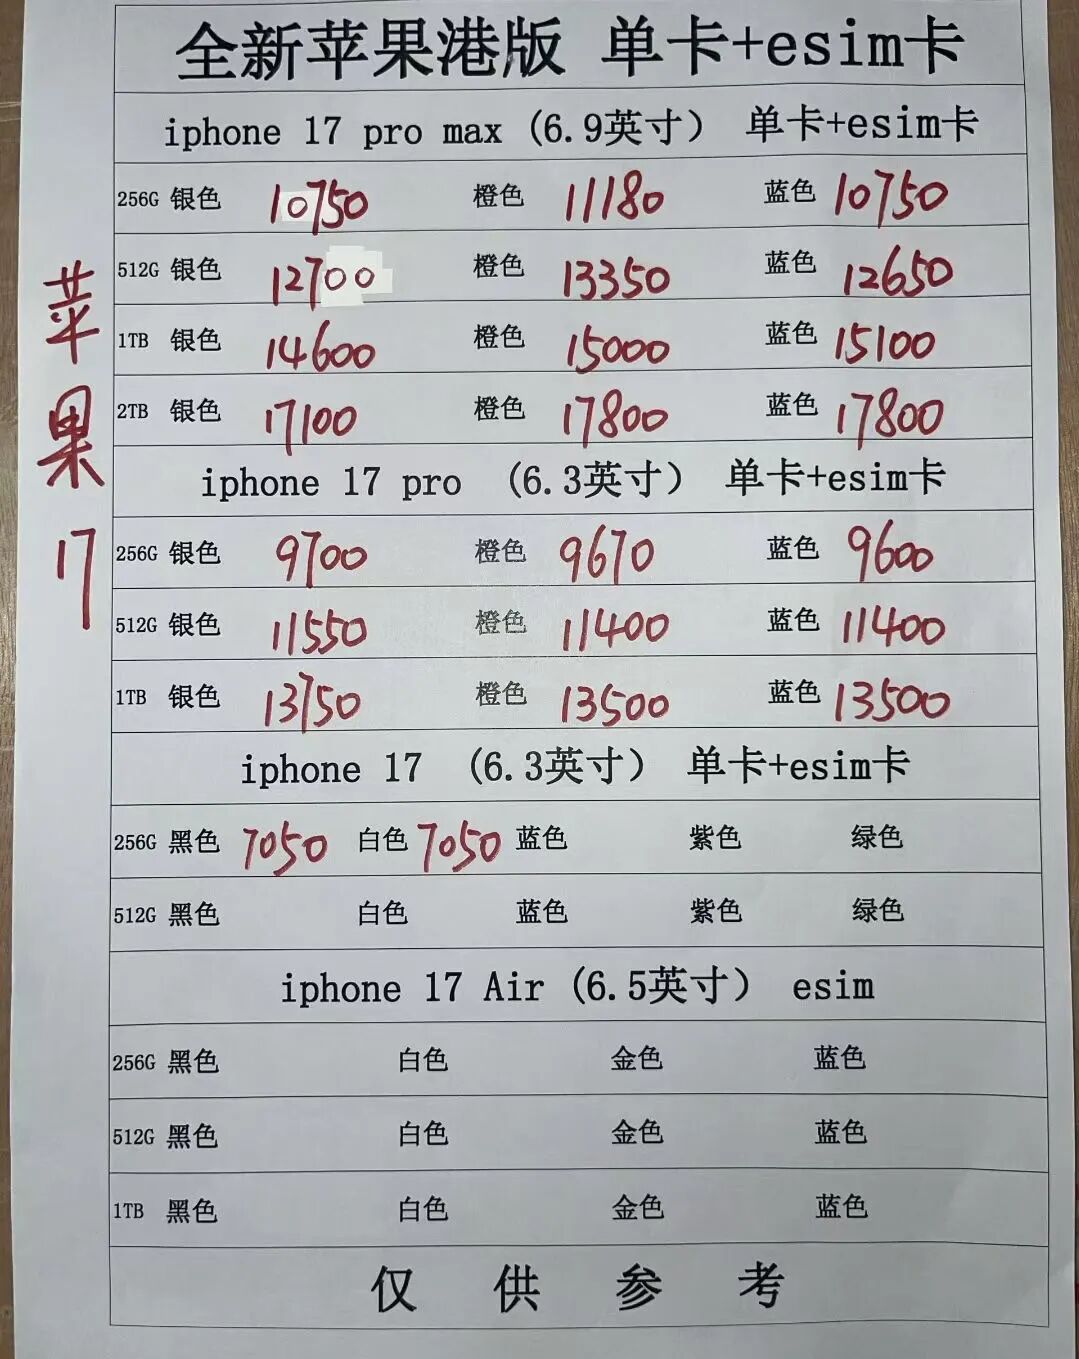 全新苹果港版 单卡+esim卡
iphone 17 pro max (6.9英寸） 单卡+esim卡
256G 银色 10750 橙色 11180 蓝色 10750
512G 银色 12700 橙色 13350 蓝色 12650
1TB 银色 14600 橙色 15000 蓝色 15100
2TB 银色 17100 橙色 17800 蓝色 17800
iphone 17 pro （6.3英寸） 单卡+esim卡
256G 银色 9700 橙色 9670 蓝色 9600
512G 银色 11550 橙色 11400 蓝色 11400
1TB 银色 13750 橙色 13500 蓝色 13500
iphone 17 （6.3英寸） 单卡+esim卡
256G 黑色 7050 白色 7050 蓝色 紫色 绿色
512G 黑色 白色 蓝色 紫色 绿色
iphone 17 Air (6.5英寸） esim
256G 黑色 白色 金色 蓝色
512G 黑色 白色 金色 蓝色
1TB 黑色 白色 金色 蓝色
仅供参考
苹果17